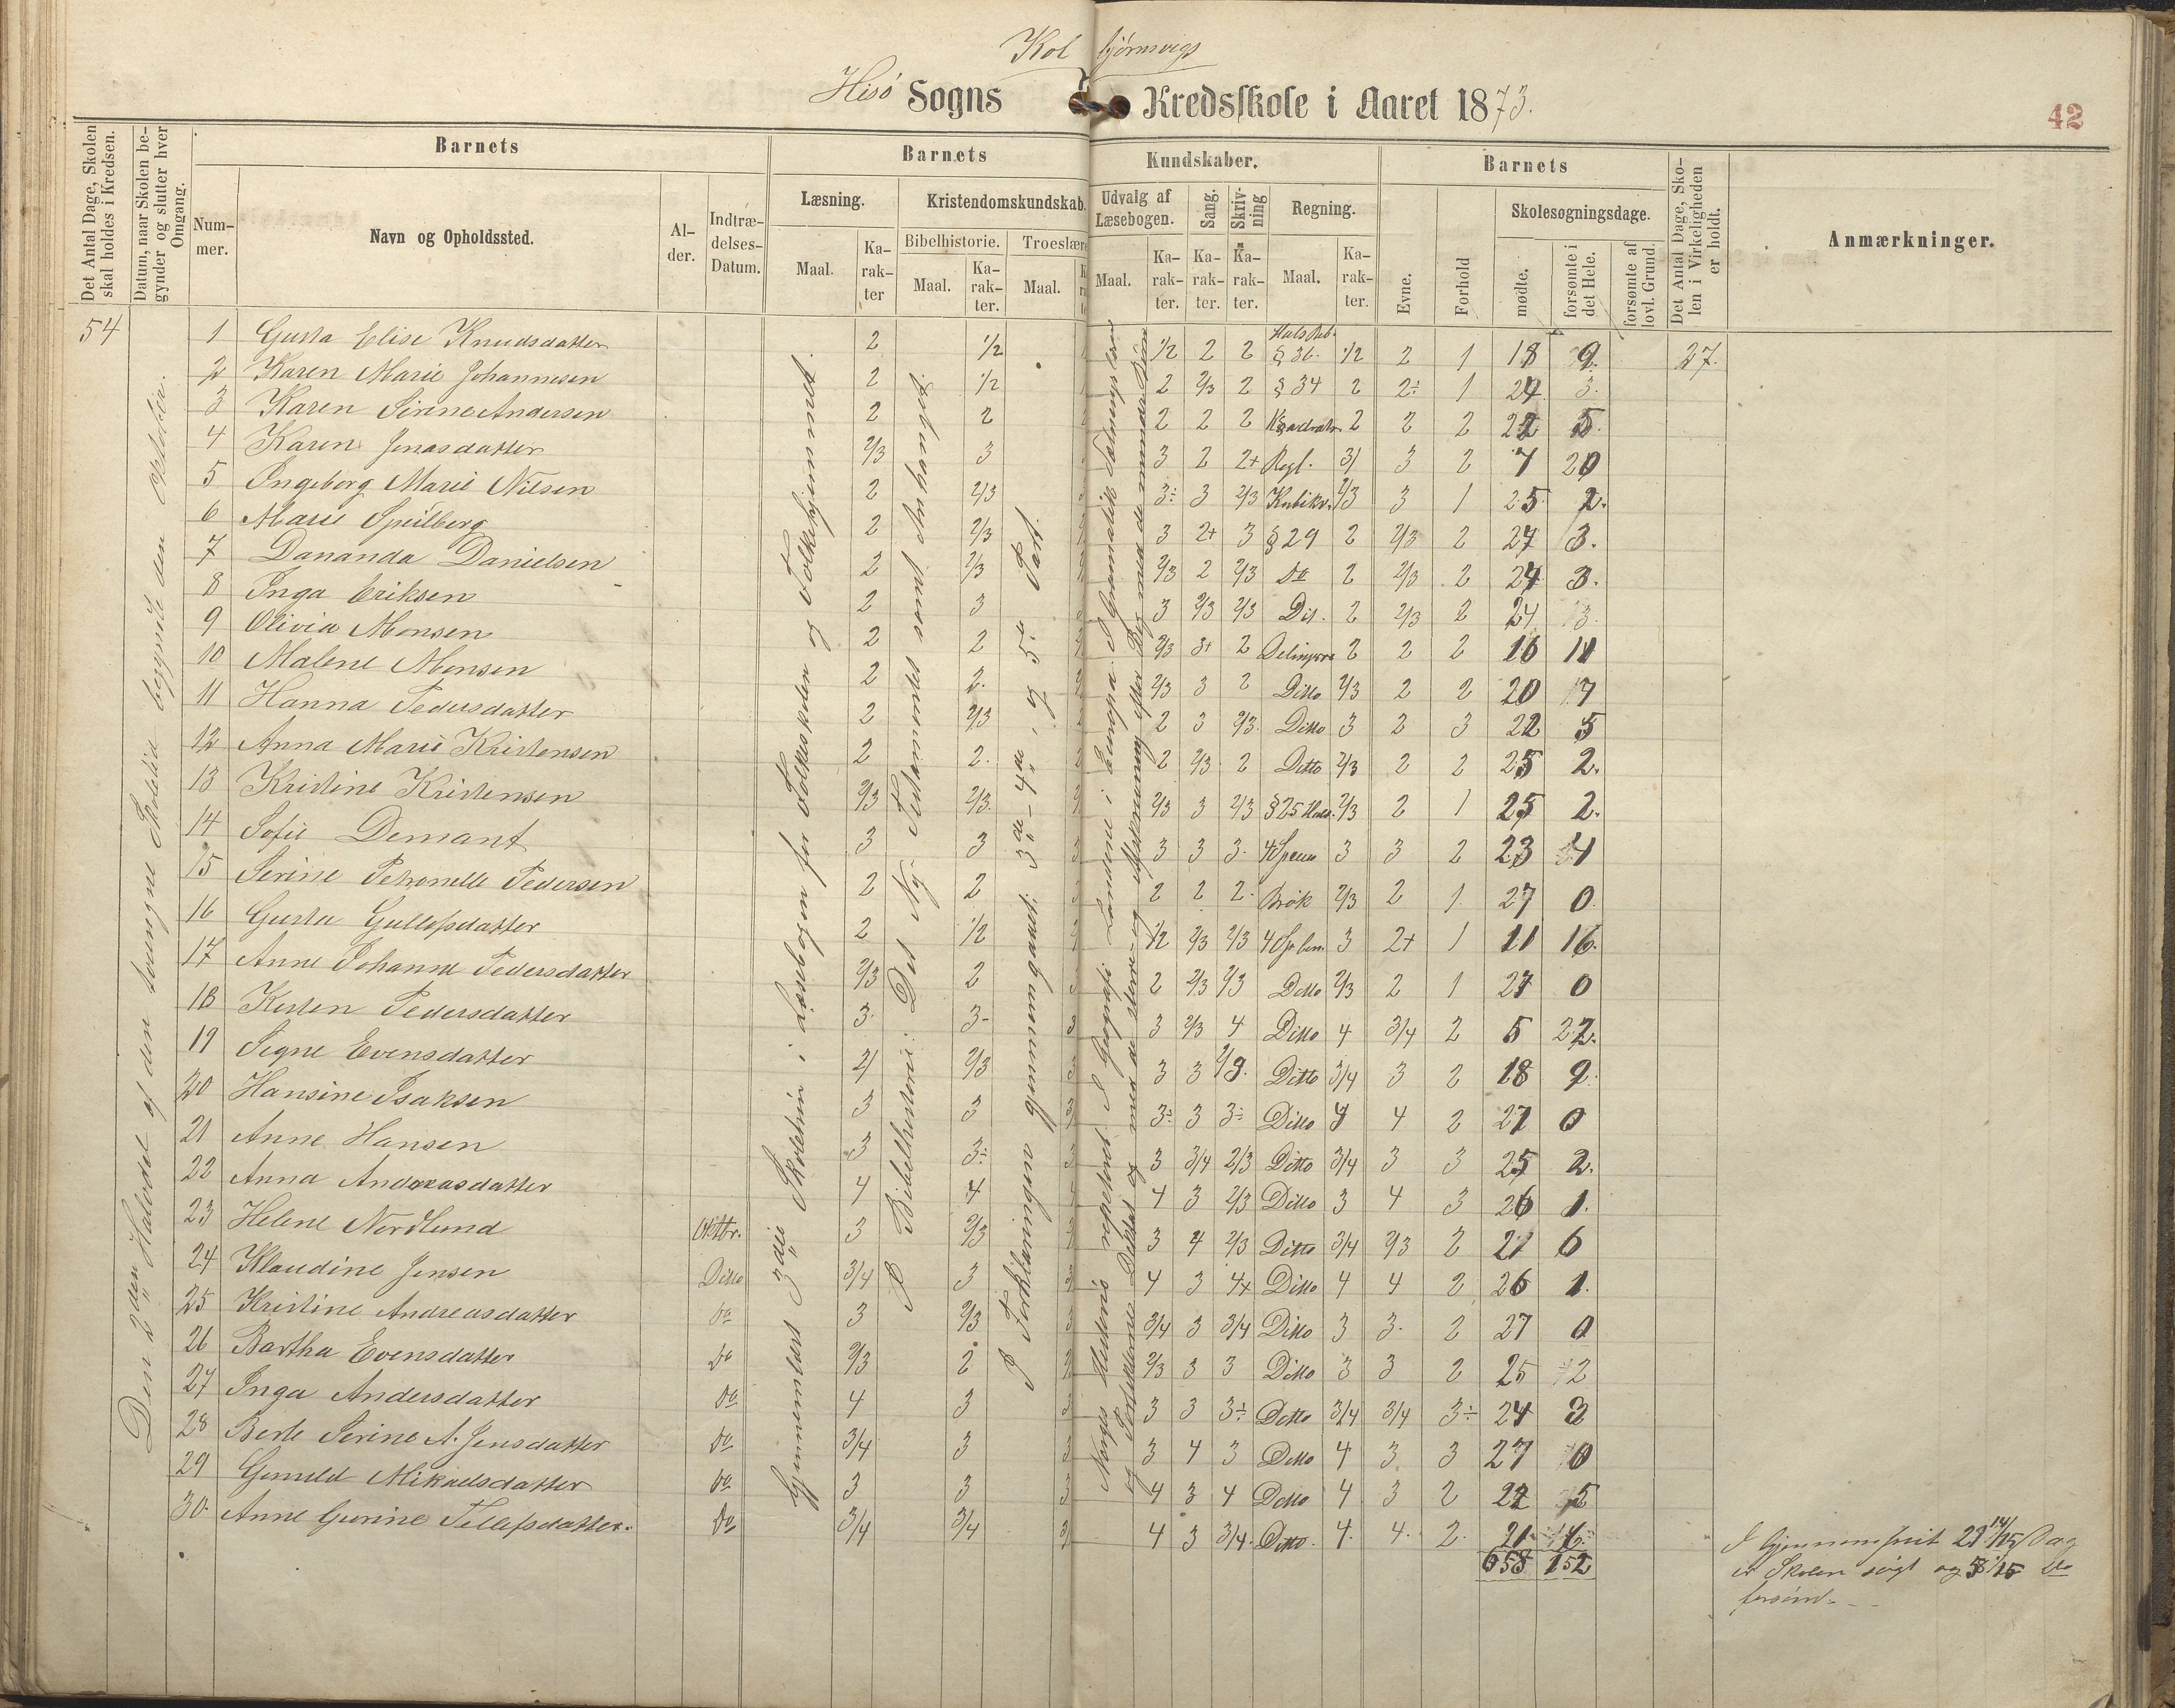 Kolbjørnsvigs
Hisø Sogns Kredsskole i Aaret 1873.
42
Det Antal Dage, Skolen skal holdes i Kredsen.
Datum, naar Skolen begynder og slutter hver Omgang.
Barnets
Nummer.
Navn og Opholdssted.
Alder.
Indtrædelses-Datum.
Barnets Kundskaber.
Læsning.
Maal.
Karakter
Kristendomskundskab.
Bibelhistorie.
Maal.
Karakter.
Troeslære
Maal.
Udvalg af Læsebogen.
Maal.
Karakter.
Sang.
Karakter.
Skrivning
Karakter.
Regning.
Maal.
Karakter.
Barnets
Evne.
Forhold
Skolesøgningsdage.
mødte.
forsømte i det Hele.
forsømte af lovl. Grund.
Det Antal Dage, Skolen i Virkeligheden er holdt.
Anmærkninger.
54
Den 2den Halvdel af den tvungne Skoletid begyndte den Oktober.
Gjennemlæst 3die Skoletrin i Læsebogen for Folkeskolen og Folkehjemmet.
I Bibelhistorie: Det Ny Testamentet samt Anhanget.
I Forklaringen gjennemgaaet: 3de - 4de og 5te Part.
1 Gusta Elise Knudsdatter 2 1/2 1/2 2 2 § 36. 1/2 2 1 18 9. 27.
2 Karen Marie Johannesen 2 1/2 2 2/3 2 § 34 2 2÷ 1 24 3.
3 Karen Sirine Andersen 2 2 2 2 2 2 2 2 22 5.
4 Karen Jonasdatter 2/3 3 3 2 2+ Regl. 3 3 2 7 20
5 Ingeborg Marie Nilsen 2 2/3 3÷ 3 2/3 Kubikr. 2/3 3 1 25 2.
6 Marie Speilberg 2 2/3 3 2+ 3 § 29 2 2/3 2 24 3.
7 Dananda Danielsen 2 2/3 2/3 2 2/3 do 2 2/3 2 24 3.
8 Inga Eriksen 2 3 3 2/3 2/3 Dit. 2 2/3 2 24 3.
9 Olivia Monsen 2 2 2/3 3+ 2 2 2 2 16 11
10 Malene Monsen 2 2. 2/3 3 2 Ditto 2/3 2 2 20 7
11 Hanna Pedersdatter 2 2/3 2 3 2/3 Ditto 3 2 3 22 5
12 Anna Marie Kristensen 2 2. 2 2/3 2 Ditto 2/3 2 2 25 2.
13 Kristine Kristensen 2/3 2/3. 2/3 3 2/3 § 25 2/3 2 1 25 2.
14 Sofie Demant 3 3 3 3 3. 3 3 2 23 4
15 Serine Petronelle Pedersen 2 2 2 2 2. Brøk 2/3 2 1 27 0
16 Gusta Gullofsdatter 2 1/2 1/2 2/3 2/3 3 2+ 1 11 16.
17 Anne Johanne Pedersdatter 2/3 2 2 2/3 2/3 Ditto 2/3 2 1 27 0
18 Kirsten Pedersdatter 3. 3- 3 2/3 4 Ditto 4 3/4 2 5 22.
19 Signe Evensdatter 2/3 3 3 2/3. Ditto 3/4 3 2 18 9
20 Hansine Isaksen 3 3 3÷ 3 3÷ Ditto 4 4 2 27 0
21 Anne Hansen 3 3÷ 3 3/4 2/3 Ditto 3/4 3 3 25 2.
22 Anna Andreasdatter 4 4 4 3 2/3 Ditto 3 4 3 26 1.
23 Helene Nordlund Oktbr. 3 2/3 3 4 2/3 Ditto 3/4 2/3 2 21 6
24 Klaudine Jensen Ditto 3/4 3 4 3 4+ Ditto 4 4 2 26 1.
25 Kristine Andreasdatter Do 3 2/3 3/4 3 3/4 Ditto 3 3. 2 27 0
26 Bartha Evensdatter Do 2/3 2 2/3 3 3 Ditto 3 3 2 25 2
27 Inga Andersdatter Do 4 3 3 3 3÷ Ditto 3/4 3/4 3÷ 24 3
28 Berte Serine A. Jensdatter Do 3/4 3 3 4 3 Ditto 4 3 3 27 0
29 Gunild Mikaelsdatter Do 3 3 4 3 4 Ditto 4 3 2 22 5
30. Anne Gurine Tellefsdatter. Do 3/4 3/4 4 3 3/4. Ditto. 4. 4. 2. 21 6
658 152
I Gjennemsnit 21 14/15 Dag
er Skolen søgt og 5 1/15 do
forsømt.